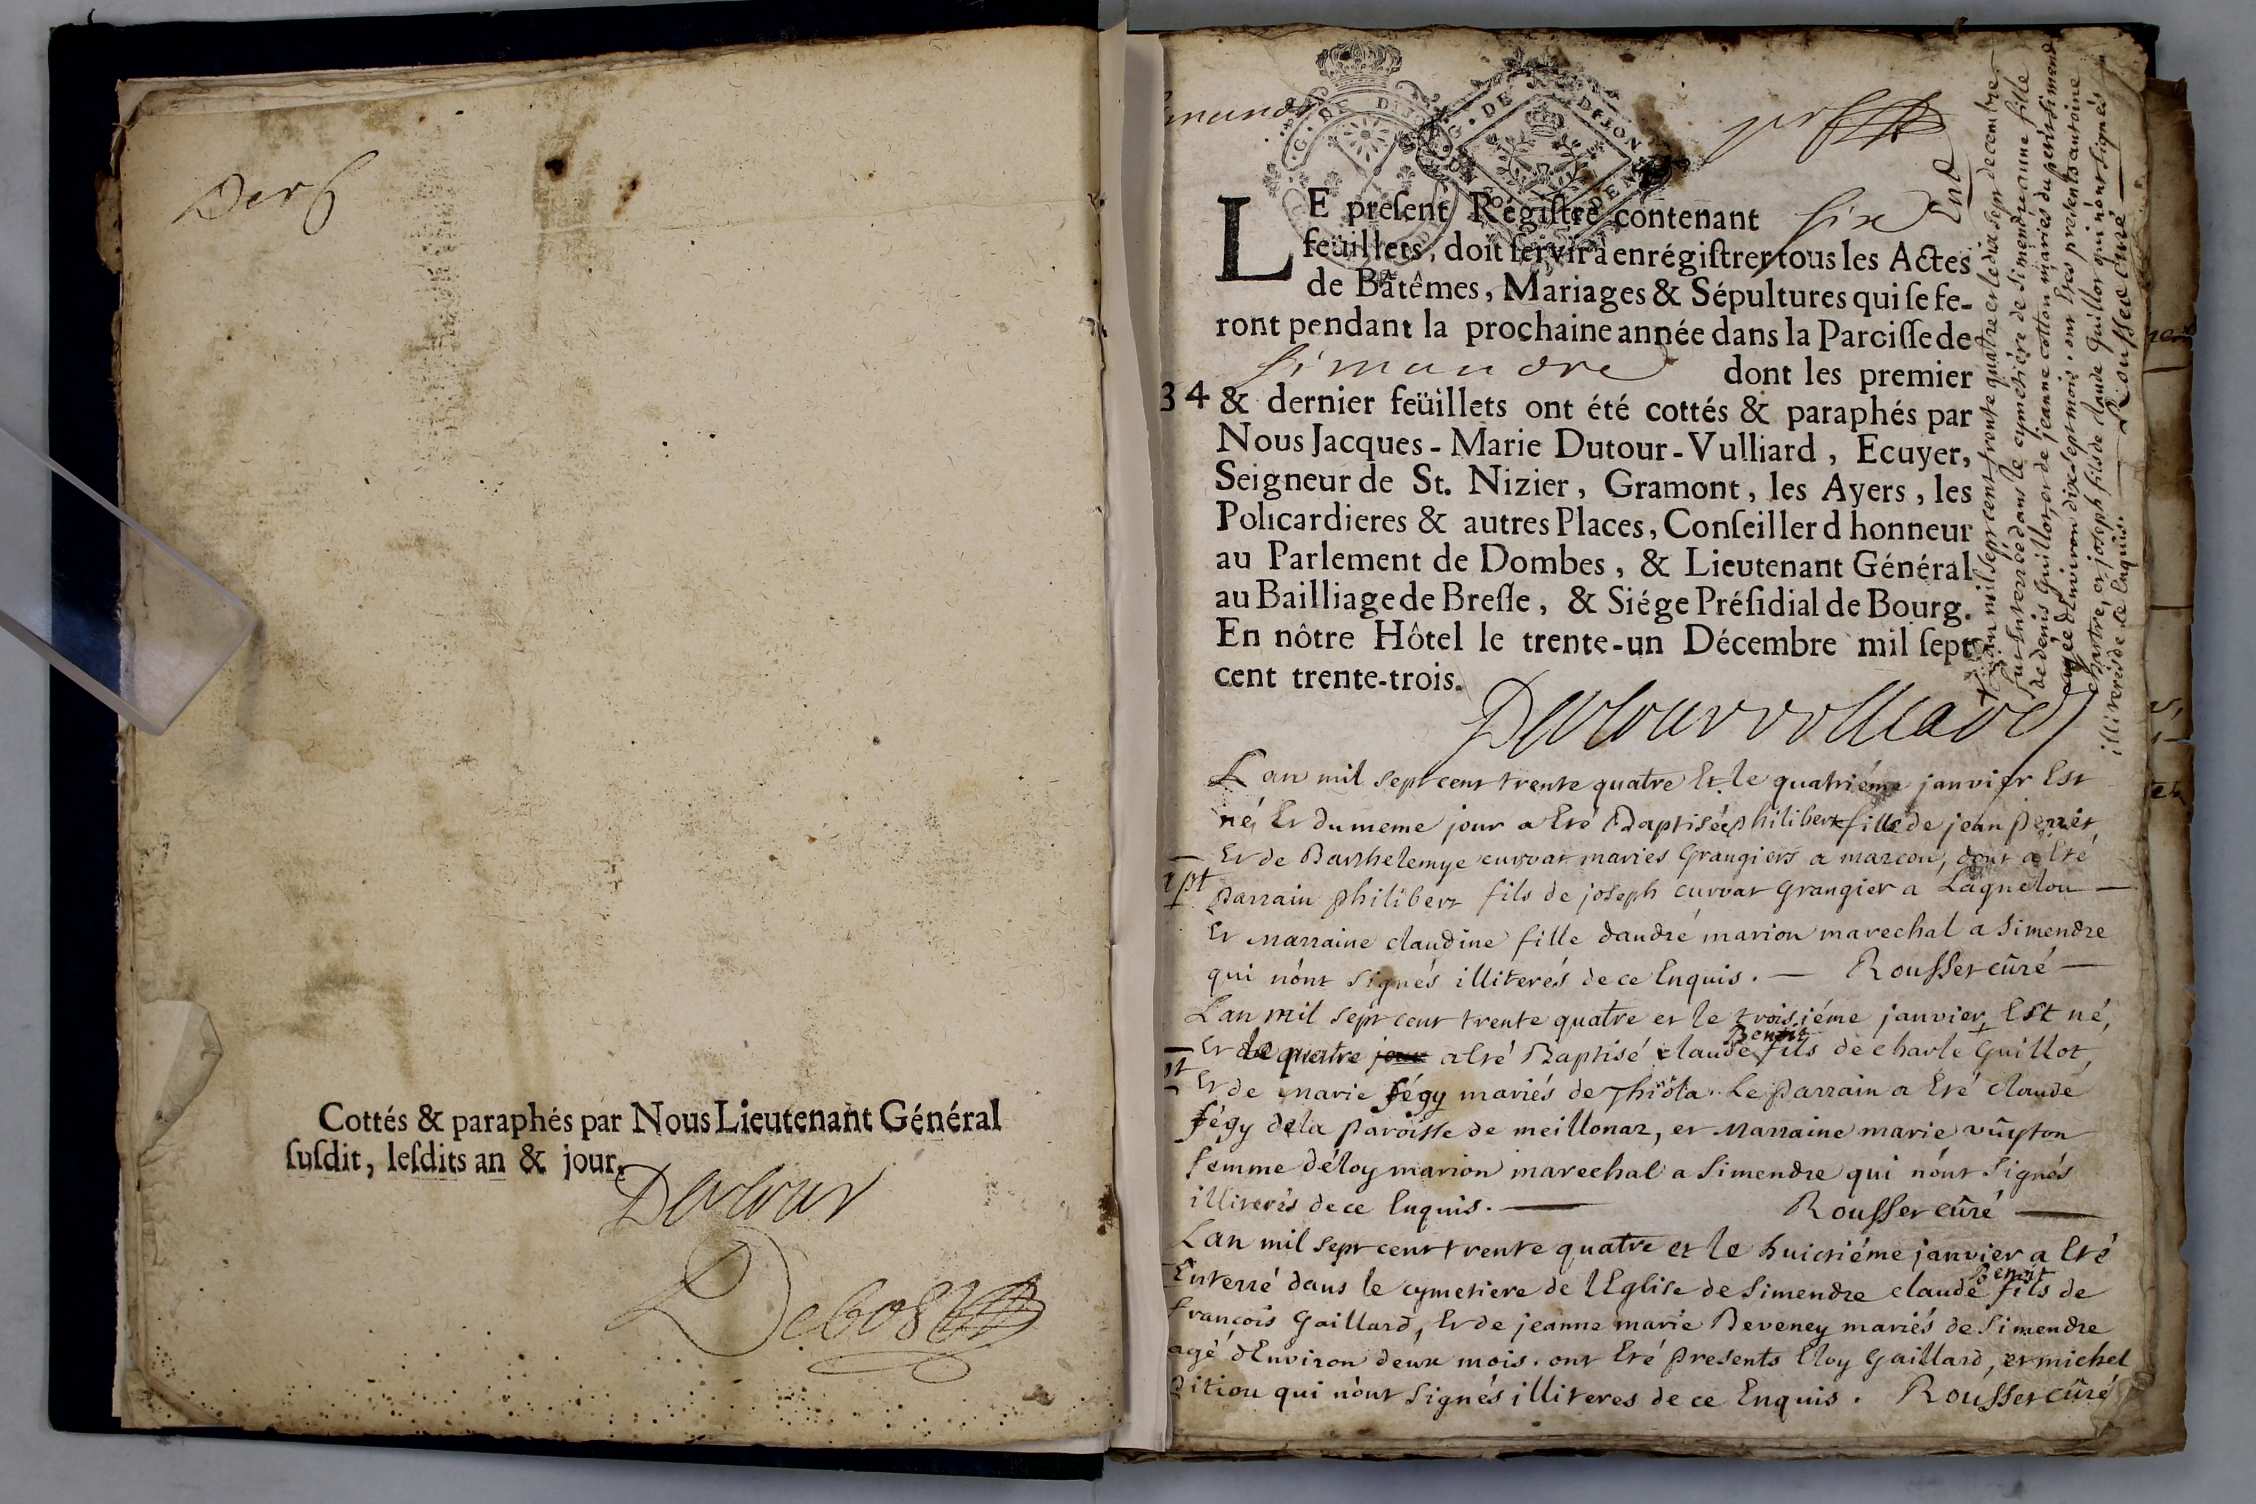 Der
Cottés & paraphés par Nous Lieutenant Général
susdit, lesdits an & jour.
Dutour
Debost
G. DE DIJON
G. DE DIJON
LE present Régistre contenant six
feüillets, doit servir à enrégistrer tous les Actes
de Bâtêmes, Mariages & Sépultures qui se fe-
ront pendant la prochaine année dans la Paroisse de
simandre dont les premier
34
& dernier feüillets ont été cottés & paraphés par
Nous Jacques-Marie Dutour-Vulliard, Ecuyer,
Seigneur de St. Nizier, Gramont, les Ayers, les
Policardieres & autres Places, Conseiller d honneur
au Parlement de Dombes, & Lieutenant Général
au Bailliage de Bresse, & Siége Présidial de Bourg.
En nôtre Hôtel le trente-un Décembre mil sept
cent trente-trois.
Dutour vulliard
L'an mil sept cent trente quatre Et le quatriéme janvier Est
né, Et du meme jour a Eté Baptisée philiberte fille de jean perret
Et de Barthelemye curvat mariés Grangiers a marcou, dont a Eté
pt
parrain philibert fils de joseph curvat Grangier a Lagnelou
Et Marraine claudine fille d'andré marion marechal a Simendre
qui n'ont signés illiterés de ce Enquis. Rousset curé
L'an mil sept cent trente quatre et le troisiéme janvier Est né,
Benoit
Et le quatre jour a Eté Baptisé claude fils de charle Guillot,
Et de Marie fégy mariés de Thiola. Le parrain a Eté claude
fégy de la paroisse de meillonaz, et Marraine marie vûyton
femme d'éloy marion marechal a Simendre qui n'ont signés
illiterés de ce Enquis. Rousset curé
L'an mil sept cent trente quatre et le huictiéme janvier a Eté
Benoit
Enterré dans le cymetiere de l'Eglise de Simendre claude fils de
françois Gaillard, Et de jeanne marie Beveney mariés de Simendre
agé d'Environ deux mois. ont Eté presents Eloy Gaillard, et michel
pition qui n'ont signés illiteres de ce Enquis. Rousset curé
End
L'an mil sept cent trente quatre et le dix sept decembre
fut Enterrée dans le cymetiére de Simendre anne fille
de denis Guillot, et de jeanne cotton mariés du petit Simendre
agée d'Environ dix sept mois. ont Etés presents antoine
chartre, et joseph fils de claude Guillot qui n'ont signés
illiterés de ce Enquis. Rousset curé